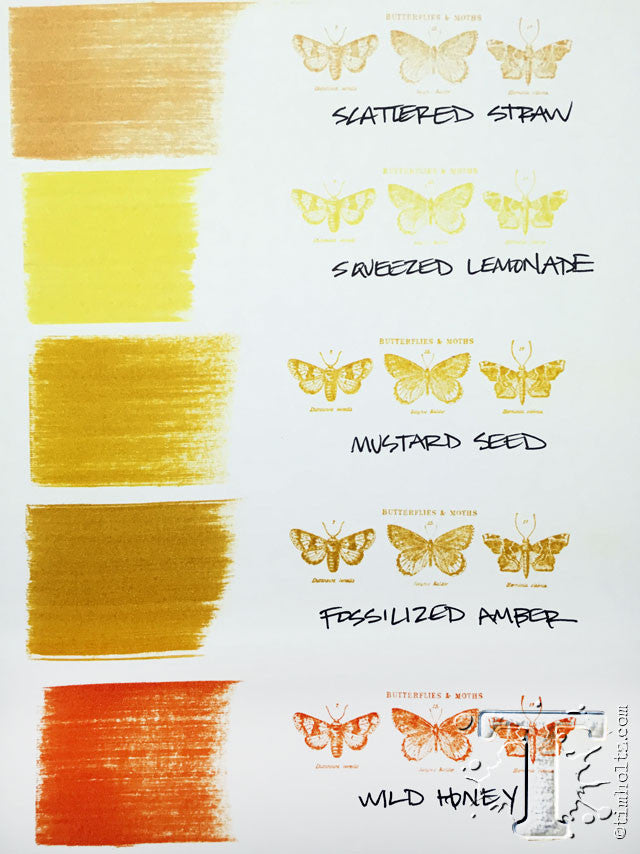 BUTTERFLIES & MOTHS
SCATTERED STRAW
BUTTERFLIES & MOTHS
SQUEEZED LEMONADE
BUTTERFLIES & MOTHS
MUSTARD SEED
BUTTERFLIES & MOTHS
FOSSILIZED AMBER
BUTTERFLIES & MOTHS
WILD HONEY
Tim
©timholtz.com